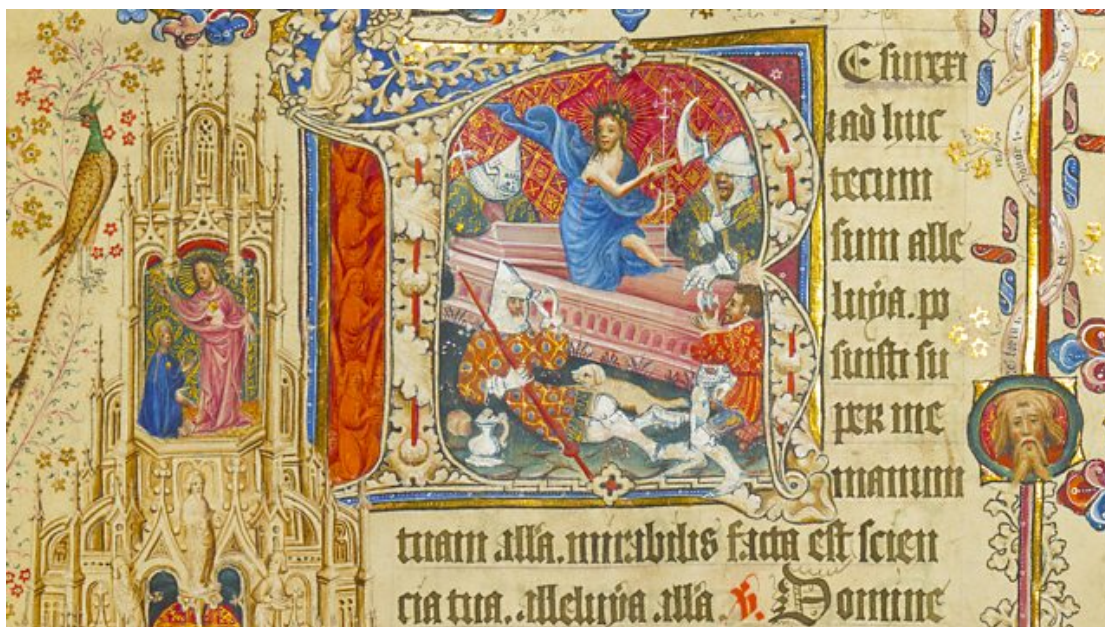 REsurrexi
et ad huc
tecum
sum alle
luya. po
suisti su
per me
manum
tuam .alla. mirabilis facta est scien
cia tua. alleluya .alla. V. Domine